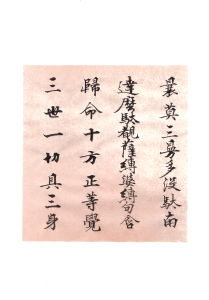 曩莫三曼多沒馱南
達麼馱覩薩縛婆縛句含
歸命十方正等覺
三世一切具三身